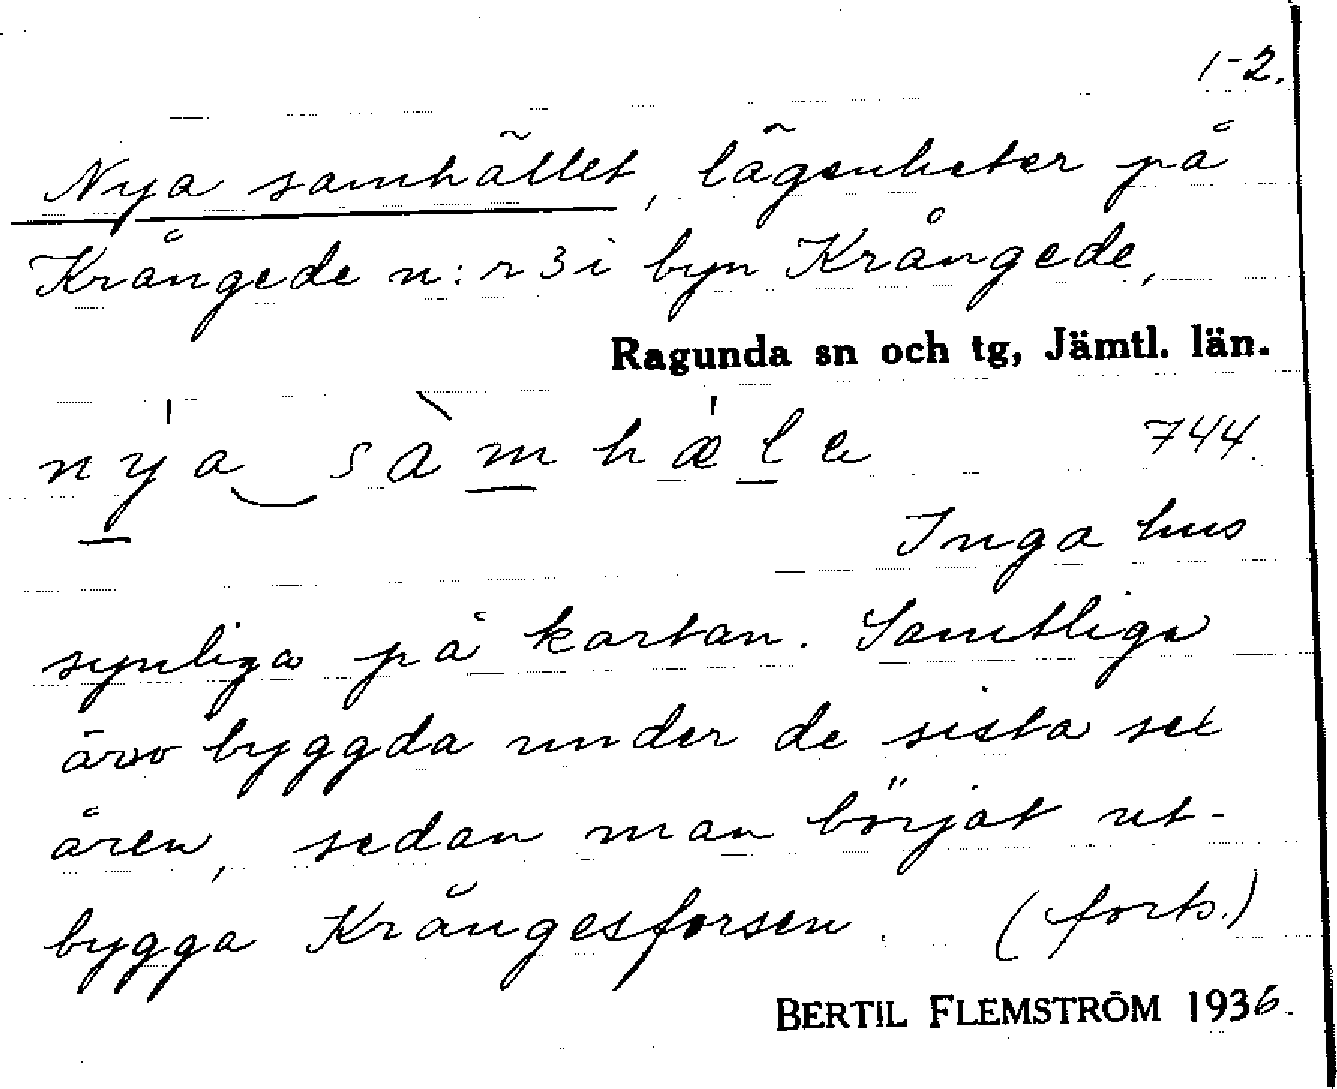 1-2.
Nya samhället, lägenheter på
Krångede n:r 3 i byn Krångede,
Ragunda sn och tg, Jämtl. län.
nya samhæle 744.
Inga hus
synliga på kartan. Samtliga
äro byggda under de sista sex
åren, sedan man börjat ut-
bygga Krångesforsen. (forts.)
BERTIL FLEMSTRÖM 1936.